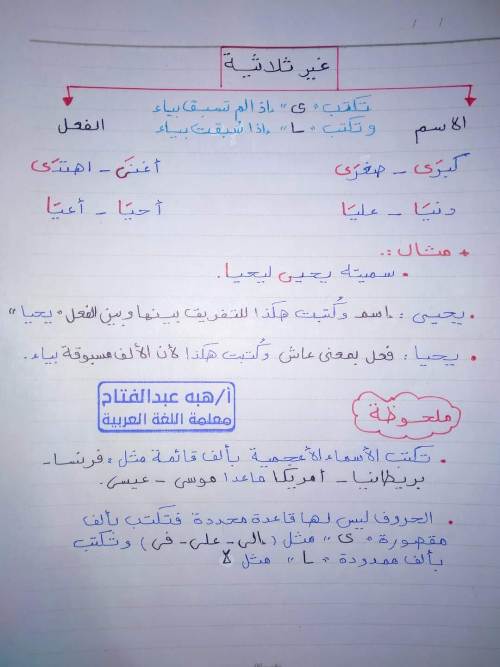 غير ثلاثية
تكتب "ى" إذا لم تسبق بياء
وتكتب "ا" إذا سُبقت بياء
الاسم
الفعل
كبرَى - صغرَى
أغنَى - اهتدَى
دنيَا - عليَا
أحيَا - أعيَا
* مثال :.
• سميته يحيى ليحيا.
• يحيى : اسم وكُتبت هكذا للتفريق بينها وبين الفعل "يحيا"
• يحيا : فعل بمعنى عاش وكُتبت هكذا لأن الألف مسبوقة بياء.
أ/هبه عبدالفتاح
معلمة اللغة العربية
ملحوظة
• تكتب الأسماء الأعجمية بألف قائمة مثل : فرنسا -
بريطانيا - أمريكا ماعدا موسى - عيسى.
• الحروف ليس لها قاعدة محددة فتكتب بألف
مقصورة "ى" مثل (إلى - على - فى) وتكتب
بألف ممدودة "ا" مثل لا